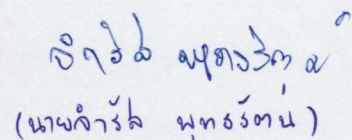 จำรัส พุทธรัตน์
(นายจำรัส พุทธรัตน์)